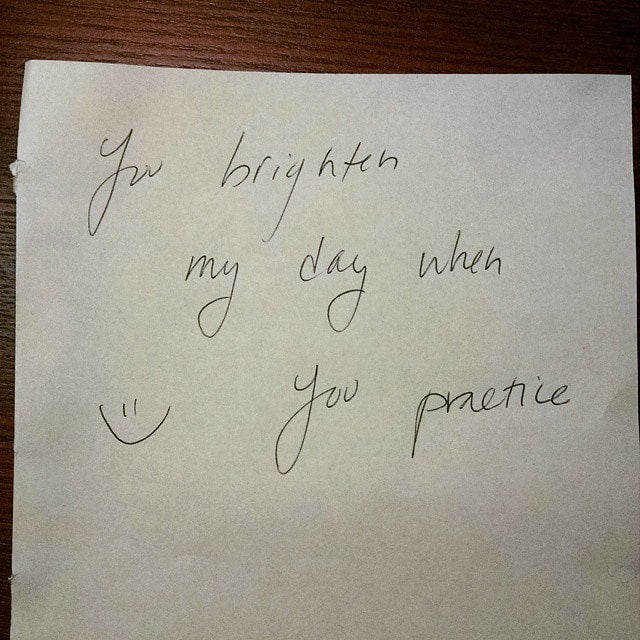 You brighten
my day when
you practice